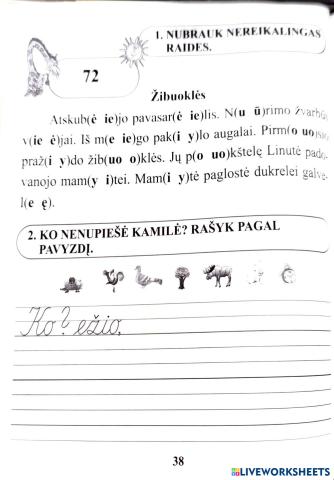 1. NUBRAUK NEREIKALINGAS
RAIDES.
72
Žibuoklės
Atskub(ė ie)jo pavasar(ė ie)lis. N(u ū)rimo žvarbūs
v(ie ė)jai. Iš m(e ie)go pak(i y)lo augalai. Pirm(o uo)sios
praž(i y)do žib(uo o)klės. Jų p(o uo)kštelę Linutė pado-
vanojo mam(y i)tei. Mam(i y)tė paglostė dukrelei galve-
l(e ę).
2. KO NENUPIEŠĖ KAMILĖ? RAŠYK PAGAL
PAVYZDĮ.
Ko? ežio,
38
LIVEWORKSHEETS